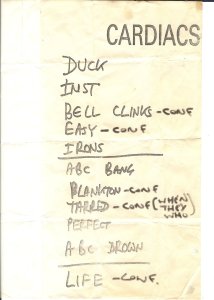 CARDIACS
DUCK
INST
BELL CLINKS - CONF
EASY - CONF
IRONS
ABC BANG
PLANKTON - CONF
TARRED - CONF (WHEN THEY WHO)
PERFECT
ABC DROWN
LIFE - CONF.